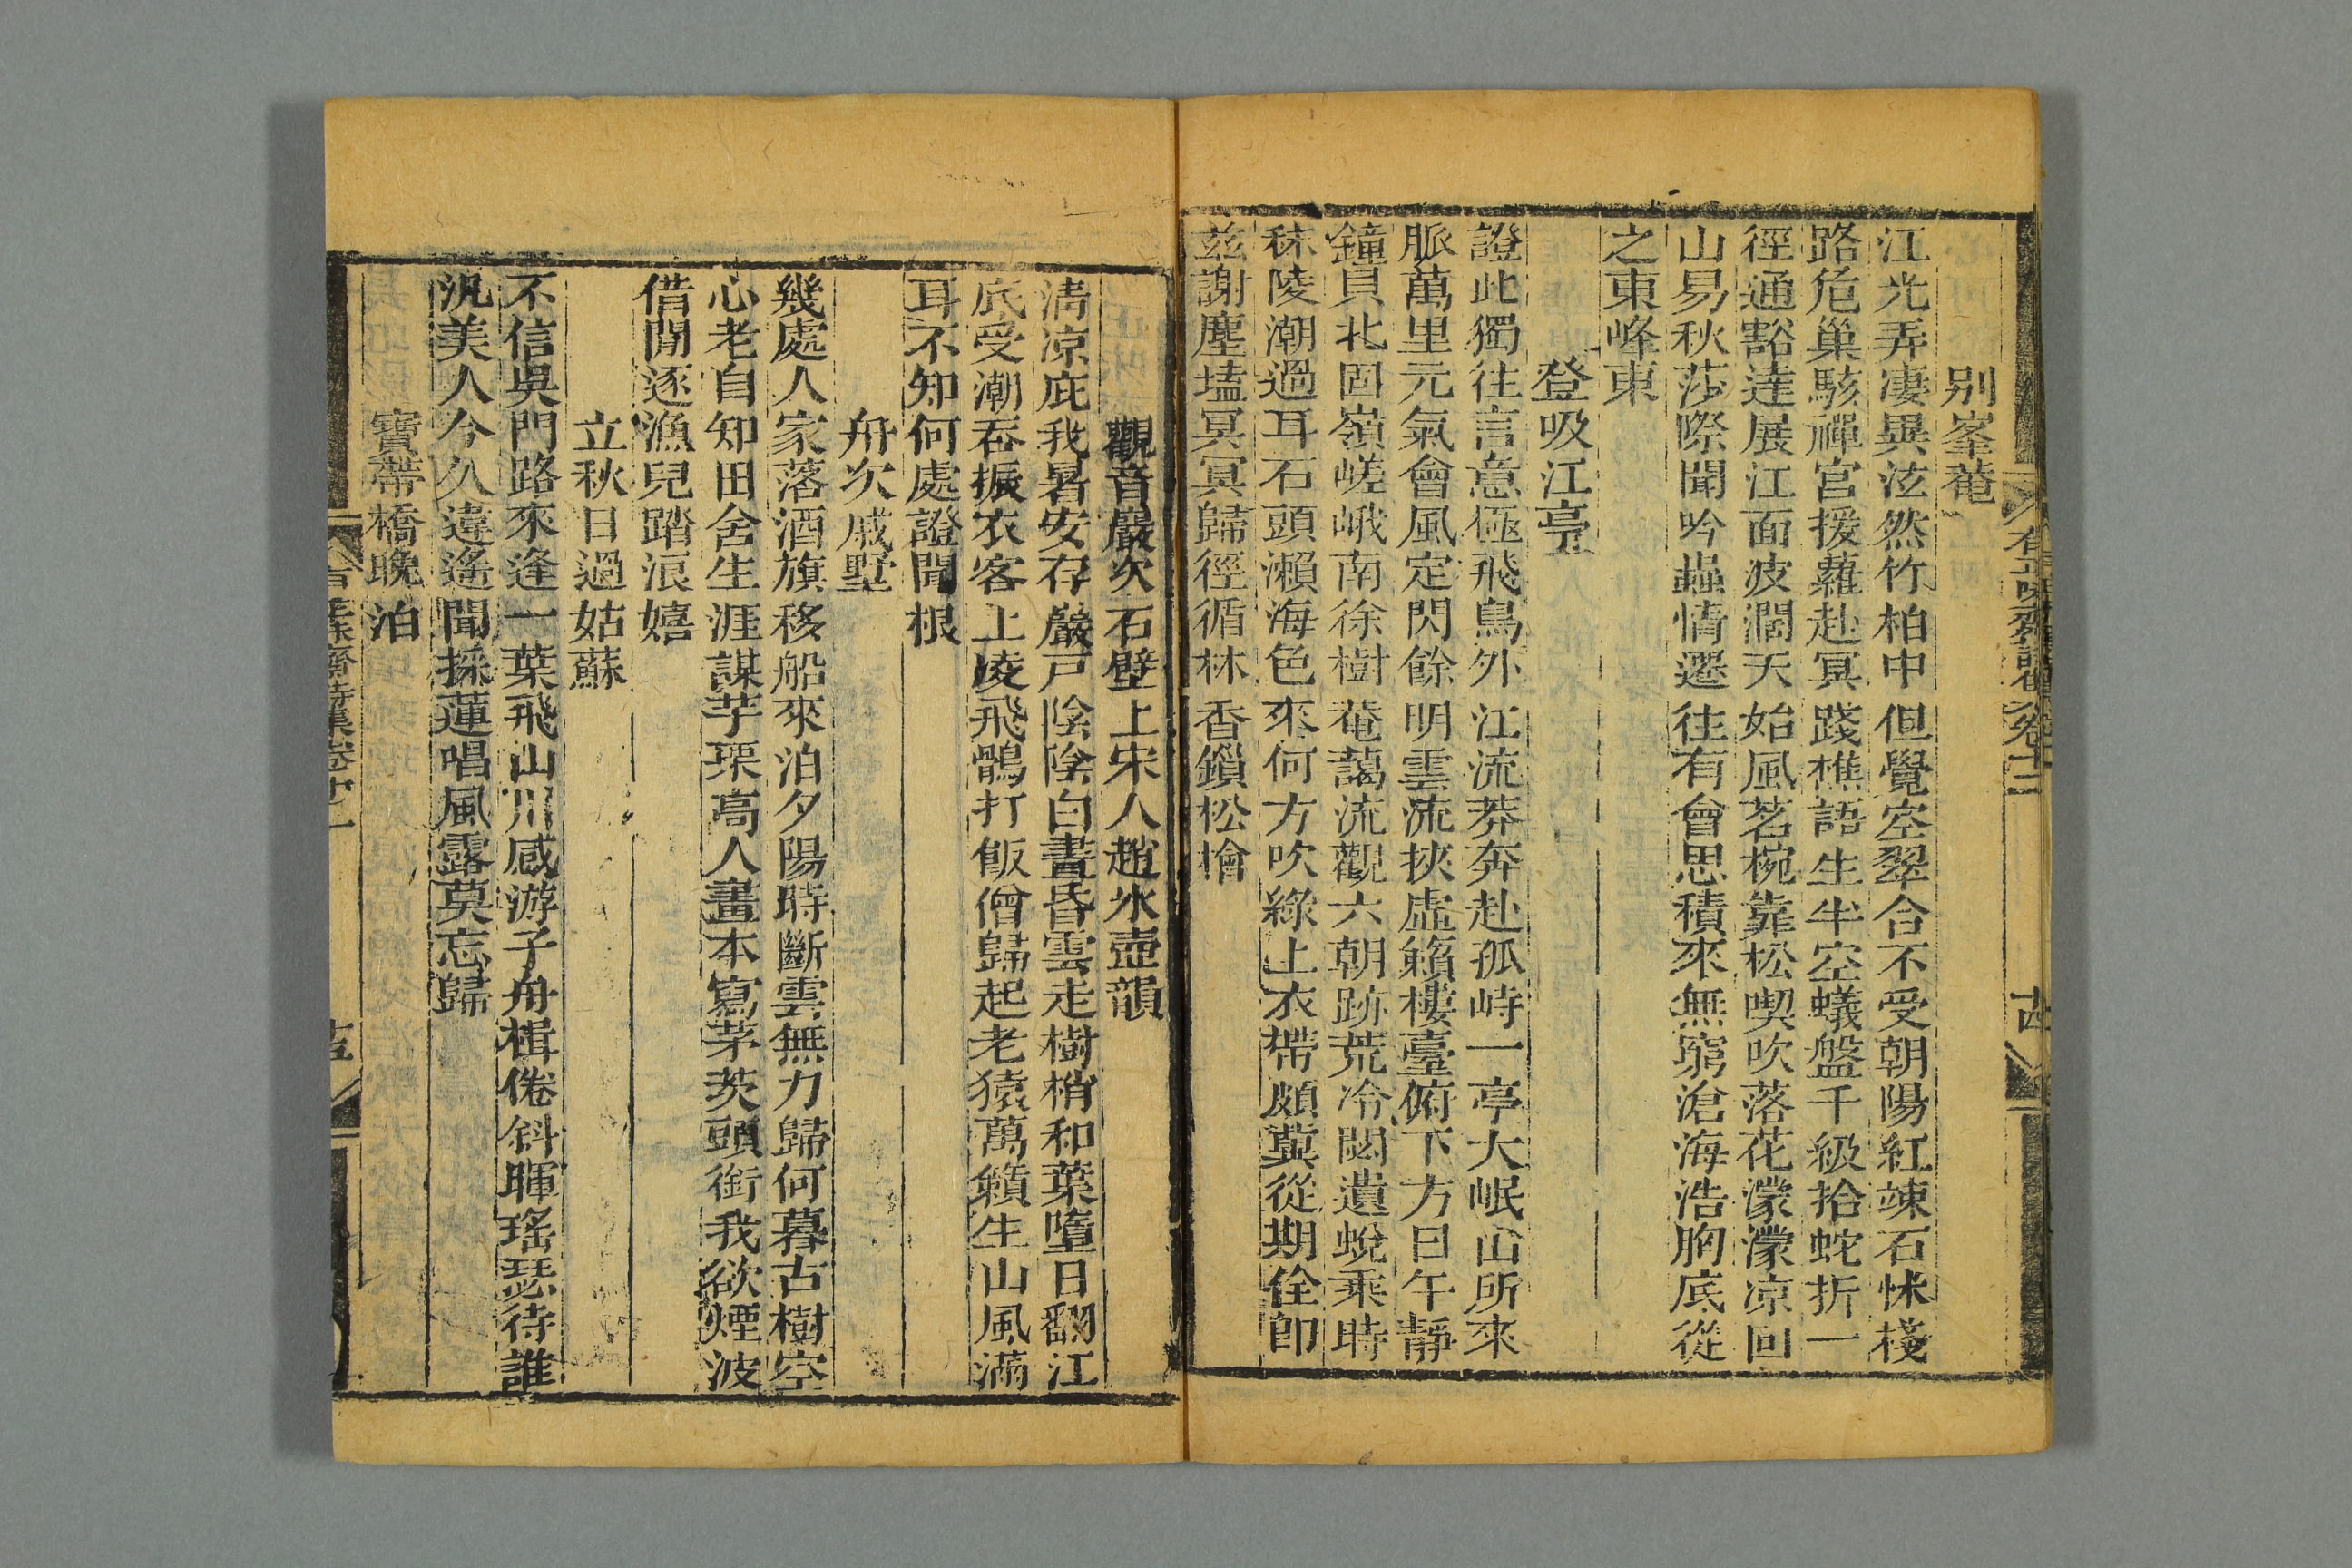 有正味齋詩集卷十二
别峯菴
江光弄凄異泫然竹柏中但覺空翠合不受朝陽紅竦石怵棧
路危巢駭禪宫援蘿赴冥踐樵語生半空蟻盤千級拾蛇折一
徑通豁達展江面波濶天始風茗椀靠松喫吹落花濛濛凉回
山易秋莎際聞吟蟲情遷往有會思積來無窮滄海浩胸底從
之東峰東
登吸江亭
證此獨往言意極飛鳥外江流莽奔赴孤峙一亭大岷山所來
脈萬里元氣會風定閃餘明雲流挾虛籟樓臺俯下方日午靜
鐘貝北固嶺嵯峨南徐樹菴藹流觀六朝跡荒冷悶遺蛻乘時
秣陵潮過耳石頭瀨海色來何方吹綠上衣帶頗冀從期佺卽
兹謝塵壒冥冥歸徑循林香鎖松檜
觀音巖次石壁上宋人趙冰壺韻
淸凉庇我暑安存巖戸陰陰白晝昏雲走樹梢和葉墮日翻江
底受潮吞振衣客上凌飛鶻打飯僧歸起老猿萬籟生山風滿
耳不知何處證聞根
舟次戚墅
幾處人家落酒旗移船來泊夕陽時斷雲無力歸何暮古樹空
心老自知田舍生涯謀芋栗高人畫本寫茅茨頭銜我欲煙波
借閒逐漁兒踏浪嬉
立秋日過姑蘇
不信吳門路來逢一葉飛山川感游子舟楫倦斜暉瑤瑟待誰
汎美人今久違遙聞採蓮唱風露莫忘歸
寶帶橋晚泊